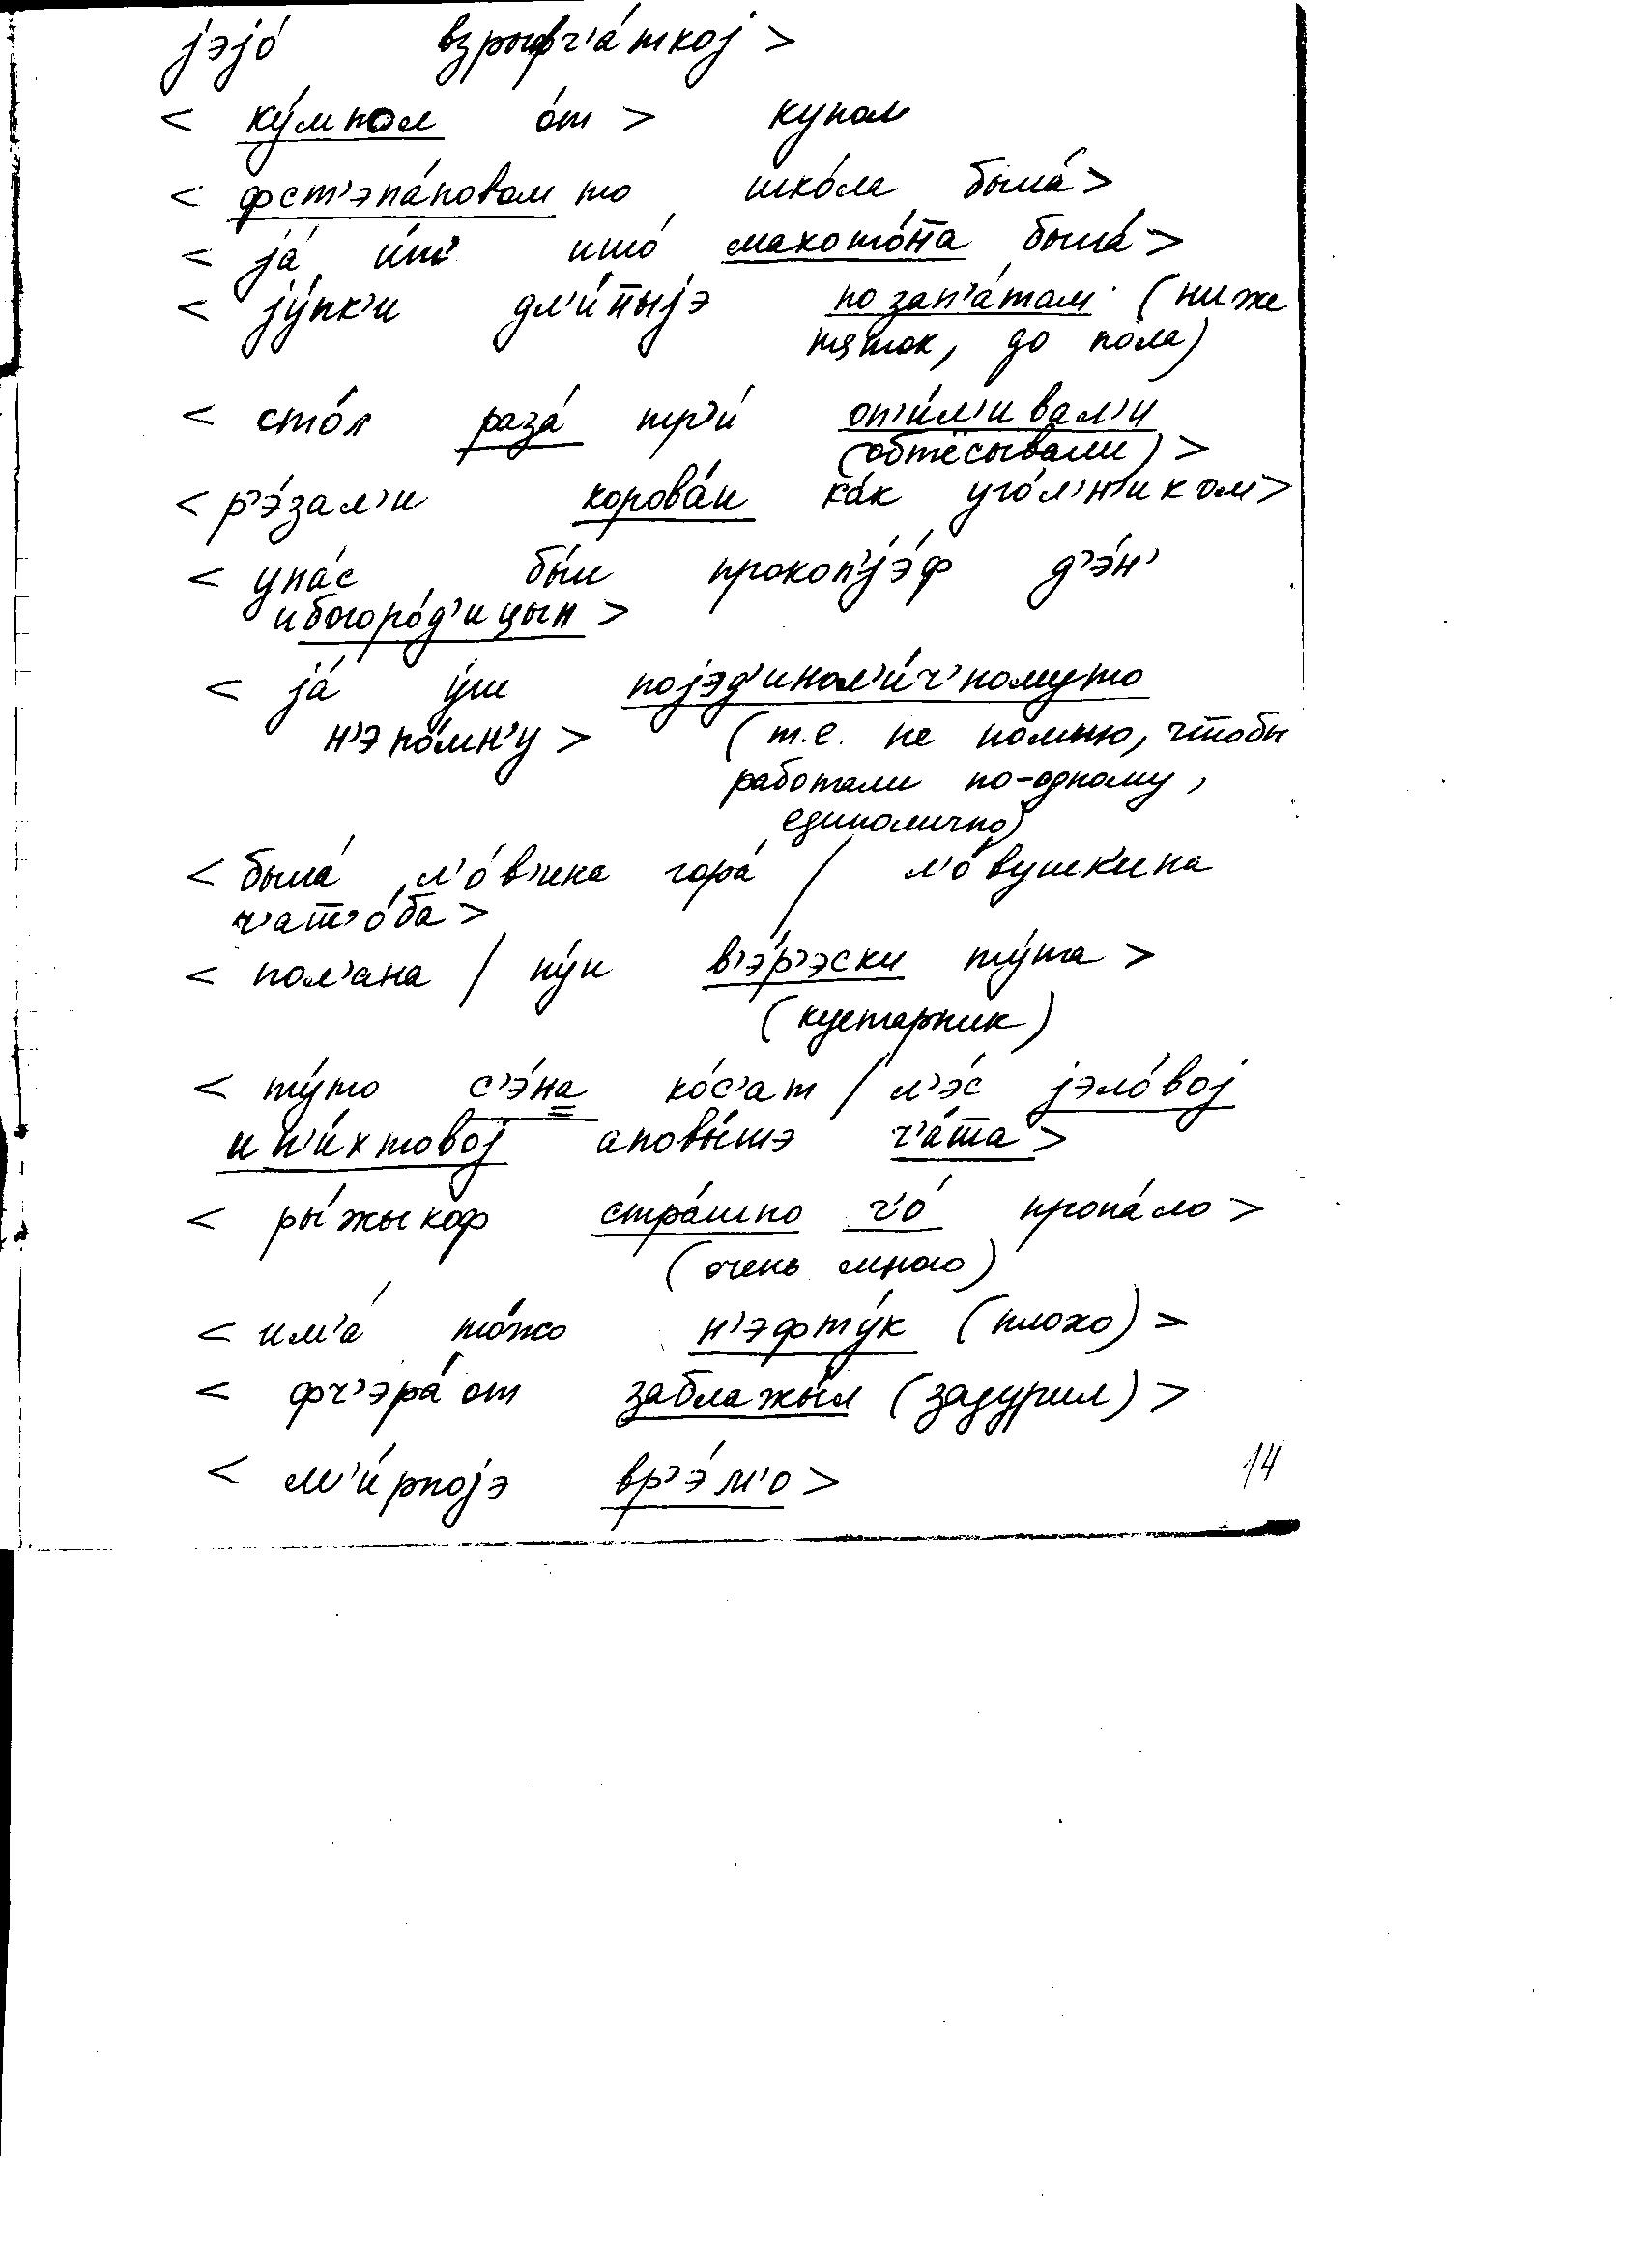 jэjо́ взрыфч'а́ткој >
< ку́мпол о́т > купол
< фст'эпа́новом то шко́ла была́ >
< jа́ ишо́ махото́н̄а была́ >
< jу́пк'и дл'и́н̄ыjэ по зап'а́там (ниже
пяток, до пола)
< сто́л раза́ тр'и́ оп'и́л'ивал'и
(обтёсывали) >
< р'э́зал'и корова́и ка́к уго́л'н'иком >
< упа́с бы́л прокоп'jэ́ф д'э́н'
ибогоро́д'ицын >
< jа́ у́ш појэд'инол'и́ч'номуто
н'эпо́мн'у > (т.е. не помню, чтобы
работали по-одному,
единолично)
< была́ л'о́в'ина гора́ / л'о́вушкина
ч'ащ'о́ба >
< пол'ана / ну́и в'э́р'эски ту́та >
(кустарник)
< ту́то с'э́на ко́с'ат / л'э́с jэло́вој
ип'и́хтовој аповы́шэ ч'а́ш̄а >
< ры́жыкоф стра́шно ч'о́ пропа́ло >
(очень много)
< им'а́ то́жо н'эфту́к (плохо) >
< фч'эра́ от заблажы́л (задурил) >
< м'и́рноjэ вр'э́м'о >
14